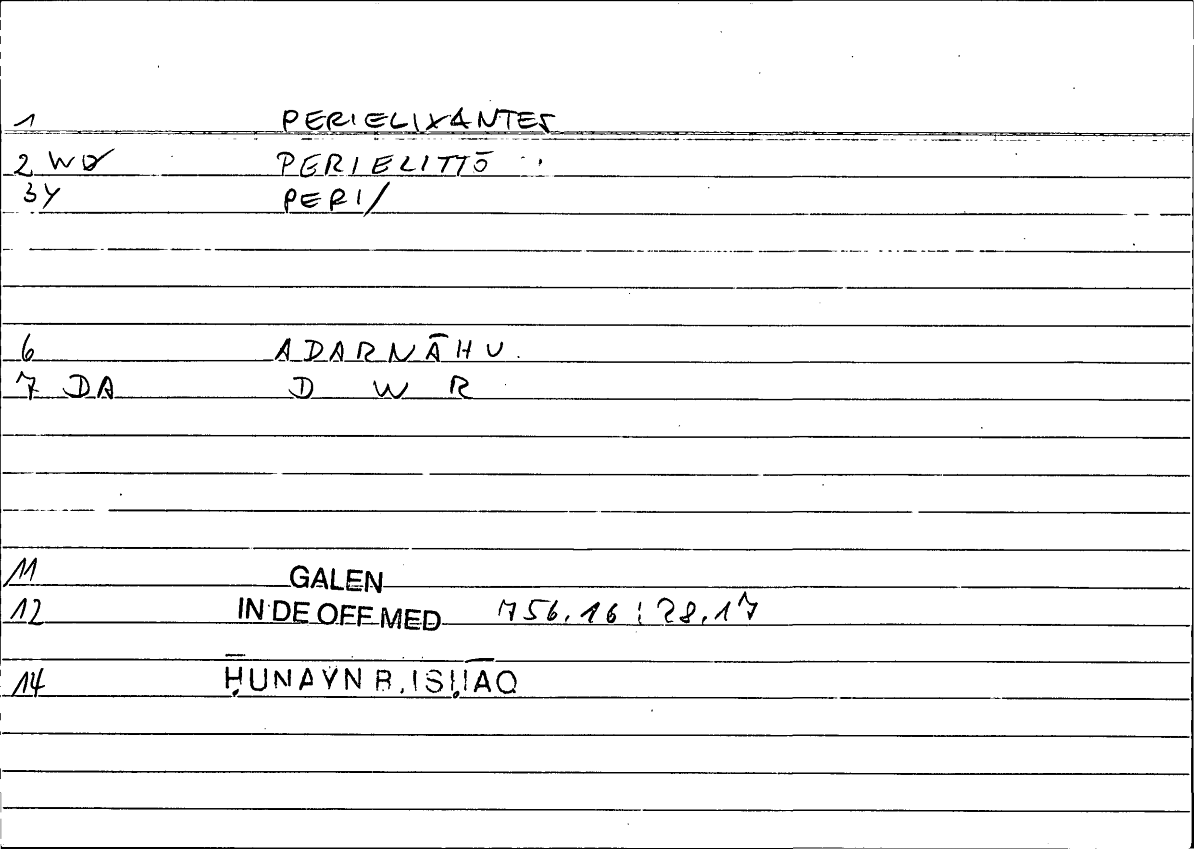 1 PERIELIXANTES
2 WO PERIELITTŌ
3Y PERI/
6 ADARNĀHU
7 DA D W R
11 GALEN
12 IN DE OFF MED 756.16 : 28.17
14 ḤUNAYN B. ISḤĀQ